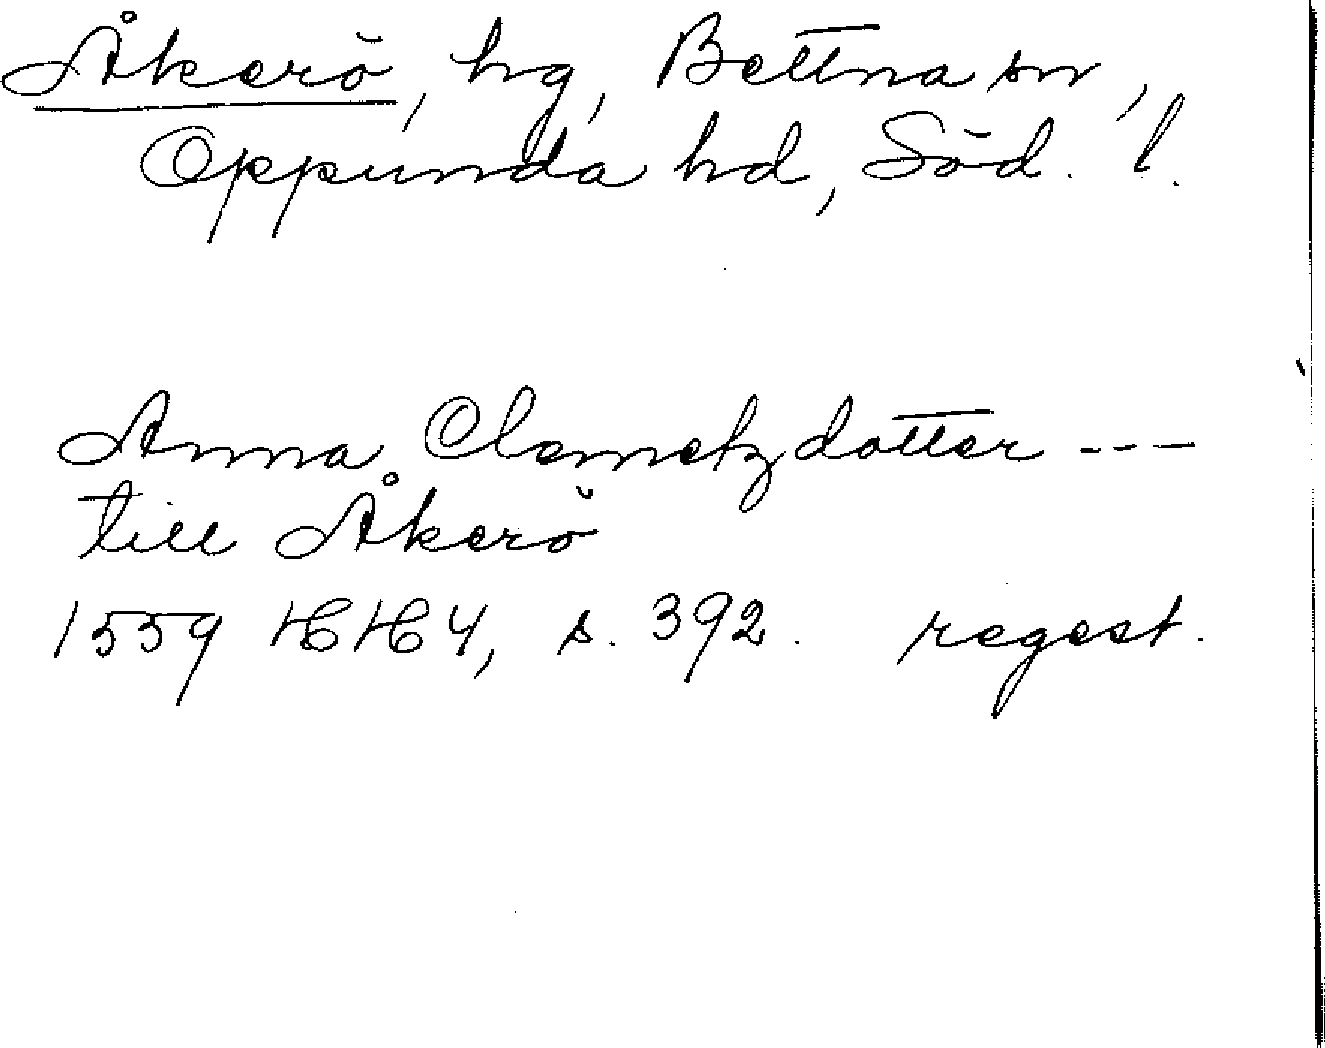 Åkerö, hg, Bettna sn,
Oppunda hd, Söd. l.
Anna Clemetzdotter ---
till Åkerö
1559 HH4, s. 392. regest.